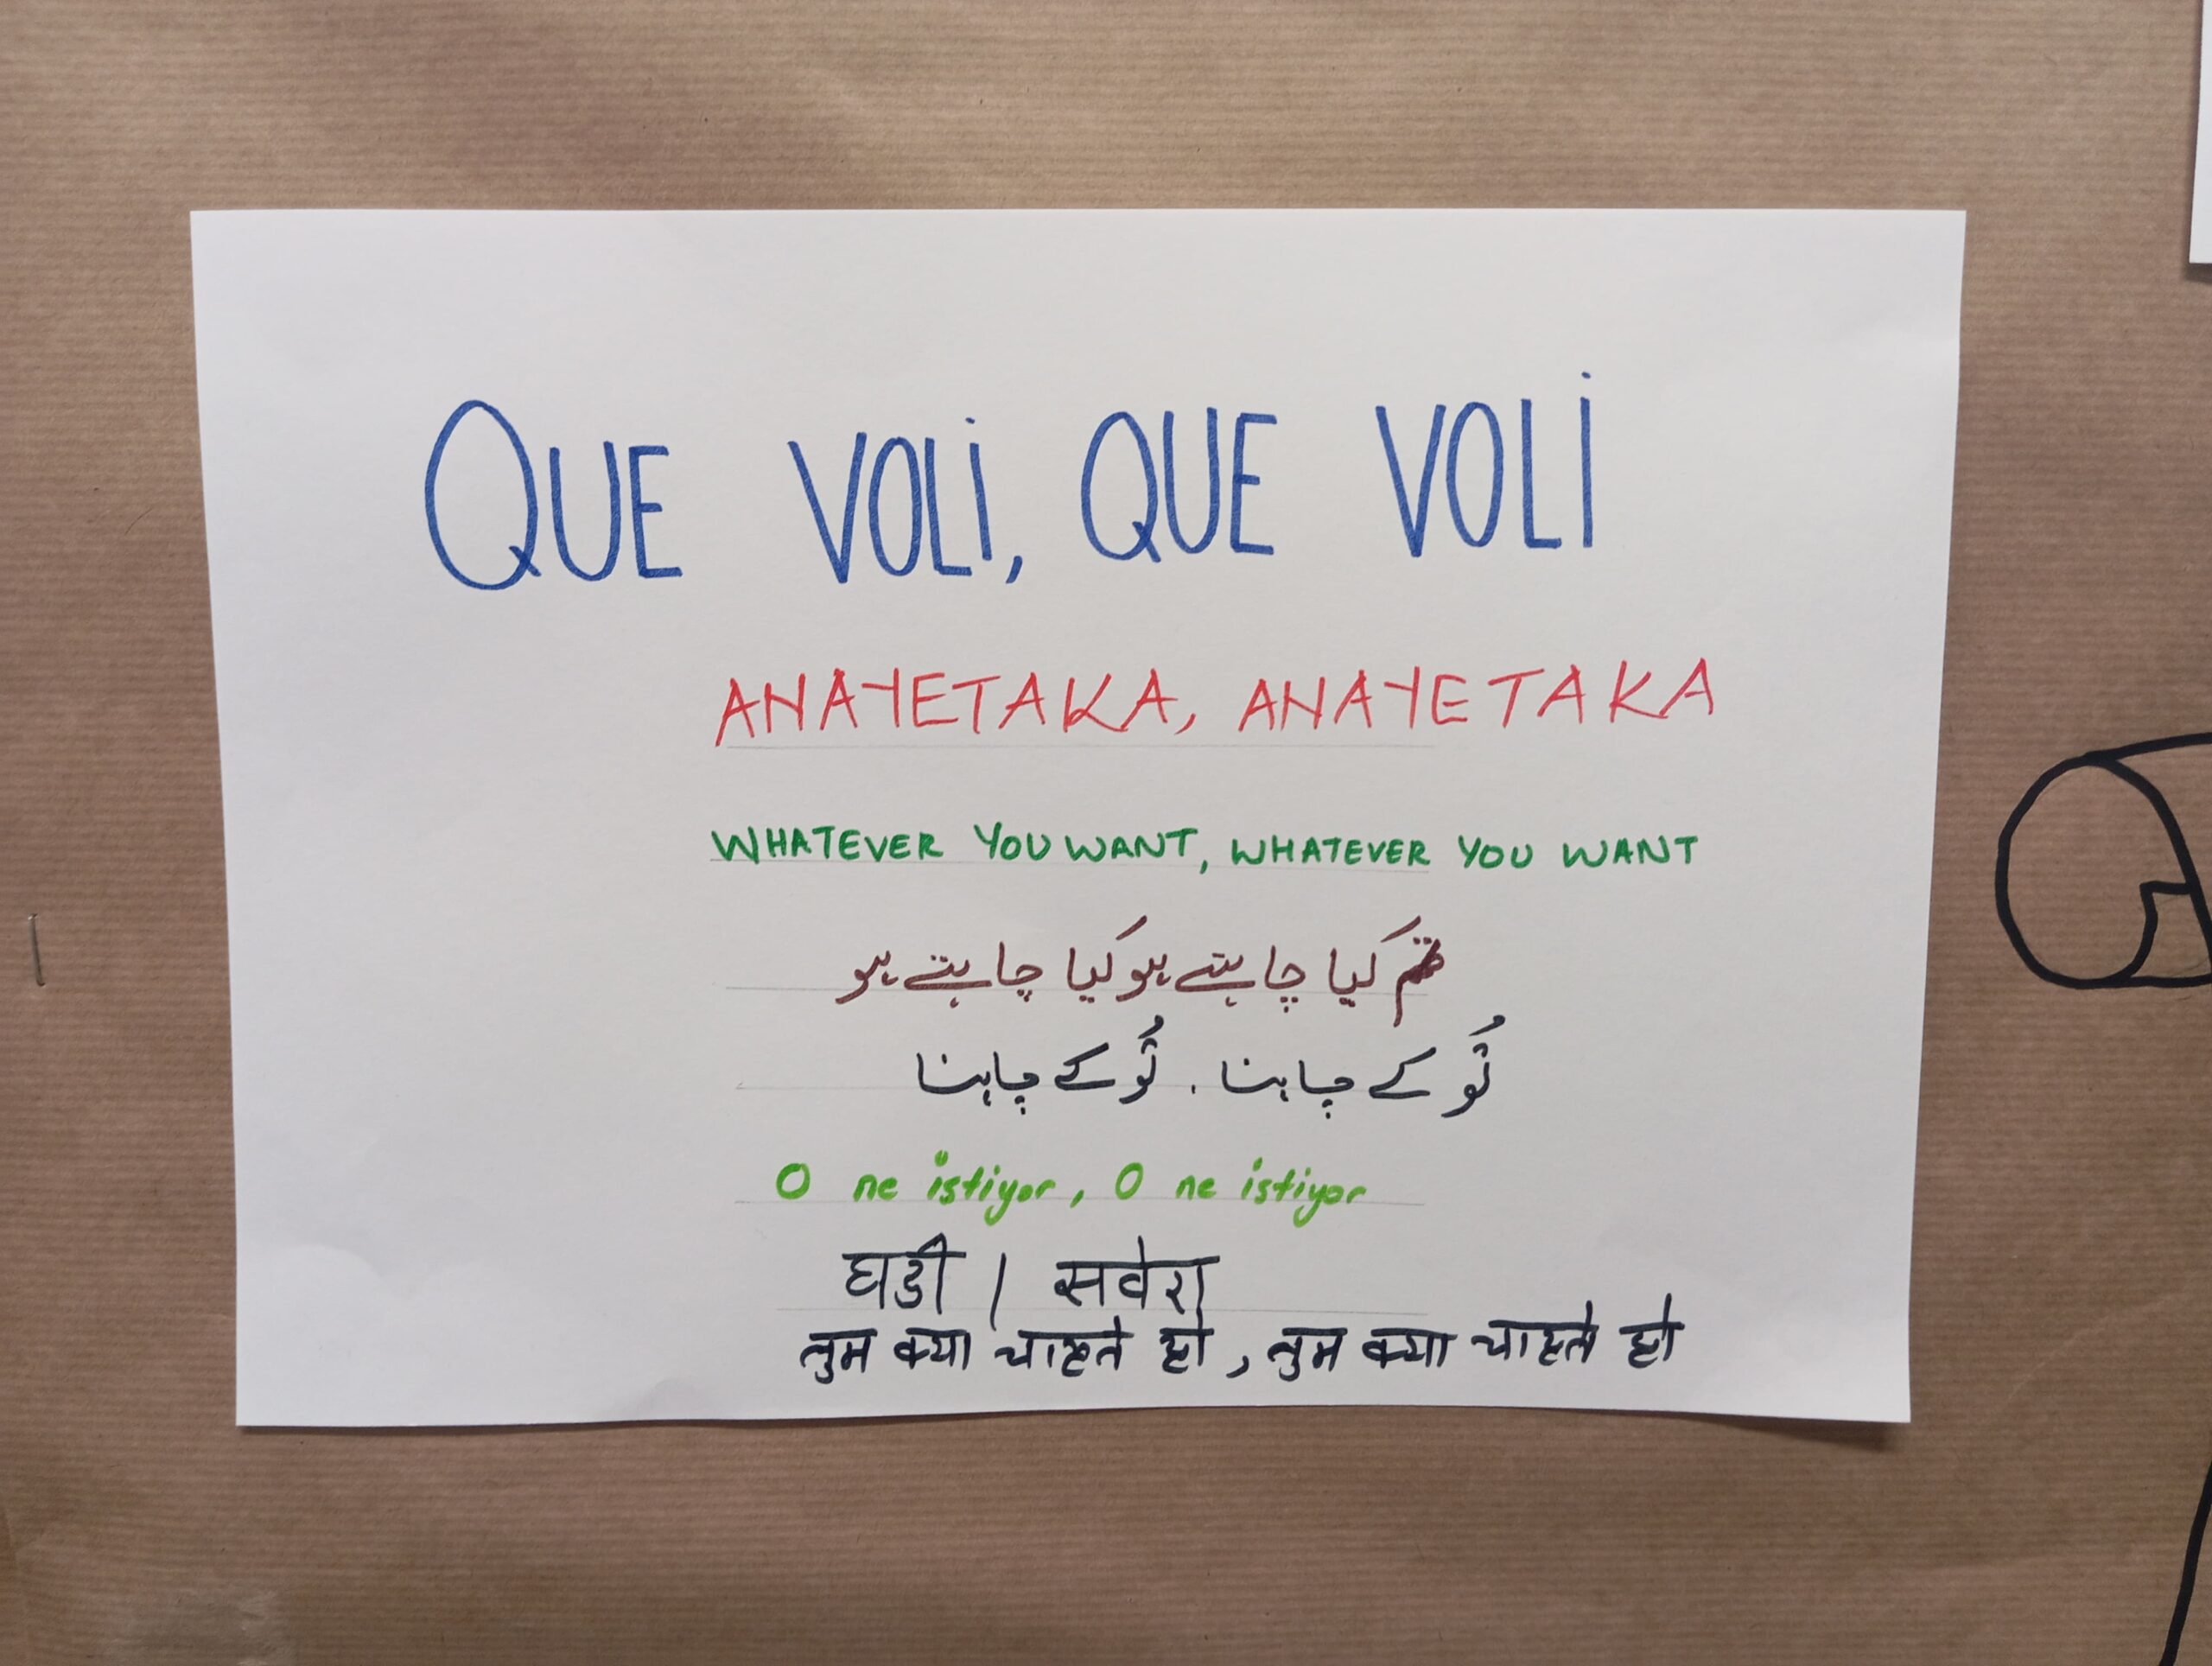 QUE VOLi, QUE VOLi
ANAYETAKA, ANAYETAKA
WHATEVER YOU WANT, WHATEVER YOU WANT
تم کیا چاہتے ہو کیا چاہتے ہو
تُو کے چاہنا . تُو کے چاہنا
O ne istiyor, O ne istiyor
घडी / सवेरा
तुम क्या चाहते हो, तुम क्या चाहते हो